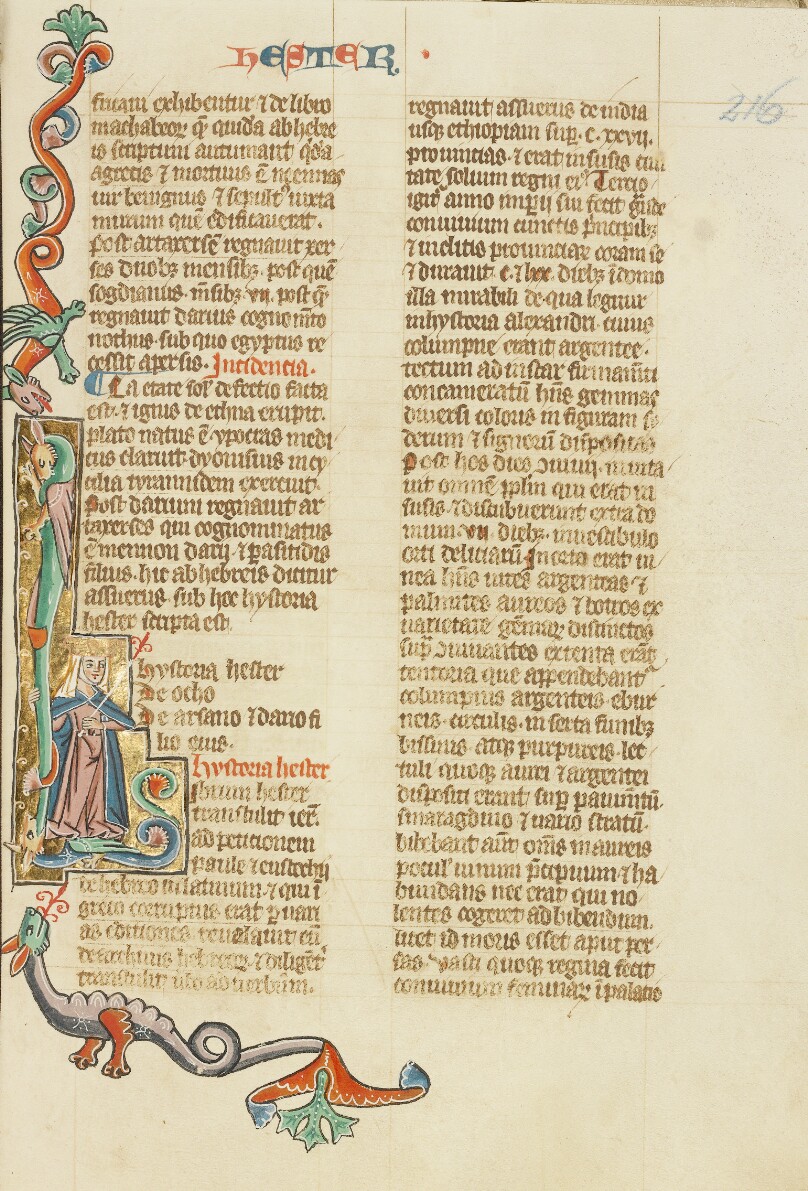 HESTER.
216
sinam exhibentur ⁊ de libro
machabeoꝝ q̄ quida ab hebre
is scriptum autumant
⁊ mortuus ē
uir benignus ⁊ sepult᷒ iuxta
murum quē edificauerat.
Post artaxersē regnauit xer
ses duobꝫ mensibꝫ. post quē
sogdianus. m̄sibꝫ vii. post q̄
regnauit darius cognomīto
nothus. sub quo egyptus re
cessit a persis. Incidencia.
solꝭ defectio facta
est. ⁊ ignis de ethna erupit.
plato natus ē. ypocras medi
cus claruit. dyonisius in cy
cilia tyrannidem exercuit.
Post darium regnauit ar
taxerses qui cognominatus
ē mennon darij ⁊ pasitidis
filius. hic ab hebreis dicitur
assuerus. sub hoc hystoria
hester scripta est.
Hystoria hester
De ocho
De arsano ⁊ dario fi
lio eius.
Hystoria hester
Librum hester
transtulit ier̄.
ad peticionem
paule ⁊ eustochij
de hebreo in latinum. ⁊ qui ī
greco corruptus erat ꝑ uari
as editiones. reuelauit eū
de archiuis hebreoꝝ. ⁊ diligēt᷑
transtulit ad uerbum.
regnauit assuerus de india
usqꝫ ethiopiam sup̄. c. xxvii.
prouincias. ⁊ erat in susis ciui
tate solium regni ei᷒. Tercio
igit᷑ anno imperij sui fecit grāde
conuiuium cunctis p̄ncipibꝫ
⁊ inclitis prouinciarꝫ coram se
⁊ durauit. c. ⁊ lxx. diebꝫ ī domo
illa mirabili de qua legitur
in hystoria alexandri. cuius
columpne erant argentee.
tectum ad instar firmamēti
concameratū hn̄s gemmas
diuersi coloris in figuram sy
derum ⁊ signorū dispositas.
Post hos dies inuita
uit omnē pplm qui erat in
susis. ⁊ discubuerunt extra do
mum. vii. diebꝫ. in uestibulo
orti deliciarū. In orto erat ui
nea hn̄s uites argenteas ⁊
palmites aureos ⁊ botros ex
uarietate gēmarꝫ distinctos
extenta erāt
tentoria que appendebant᷑
columpnis argenteis. ebur
neis. circulis. inserta funibꝫ
bissinis. atqꝫ purpureis. lec
tuli quoqꝫ aurei ⁊ argentei
dispositi erant sup̄ pauimētū.
smaragdino ⁊ uario stratū.
bibebant aūt om̄s in aureis
pocul᷑ uinum p̄cipuum ⁊ ha
bundans. nec erat qui no
lentes cogeret ad bibendum.
licet id moris esset aput per
sas. Vasti quoqꝫ regina fecit
conuiuium feminarꝫ ī palacio